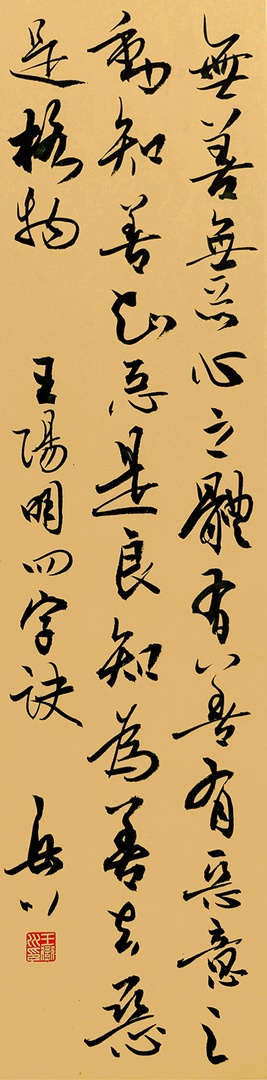 無善無惡心之體有善有惡意之
動知善知惡是良知為善去惡
是格物
王陽明四字訣
岳川